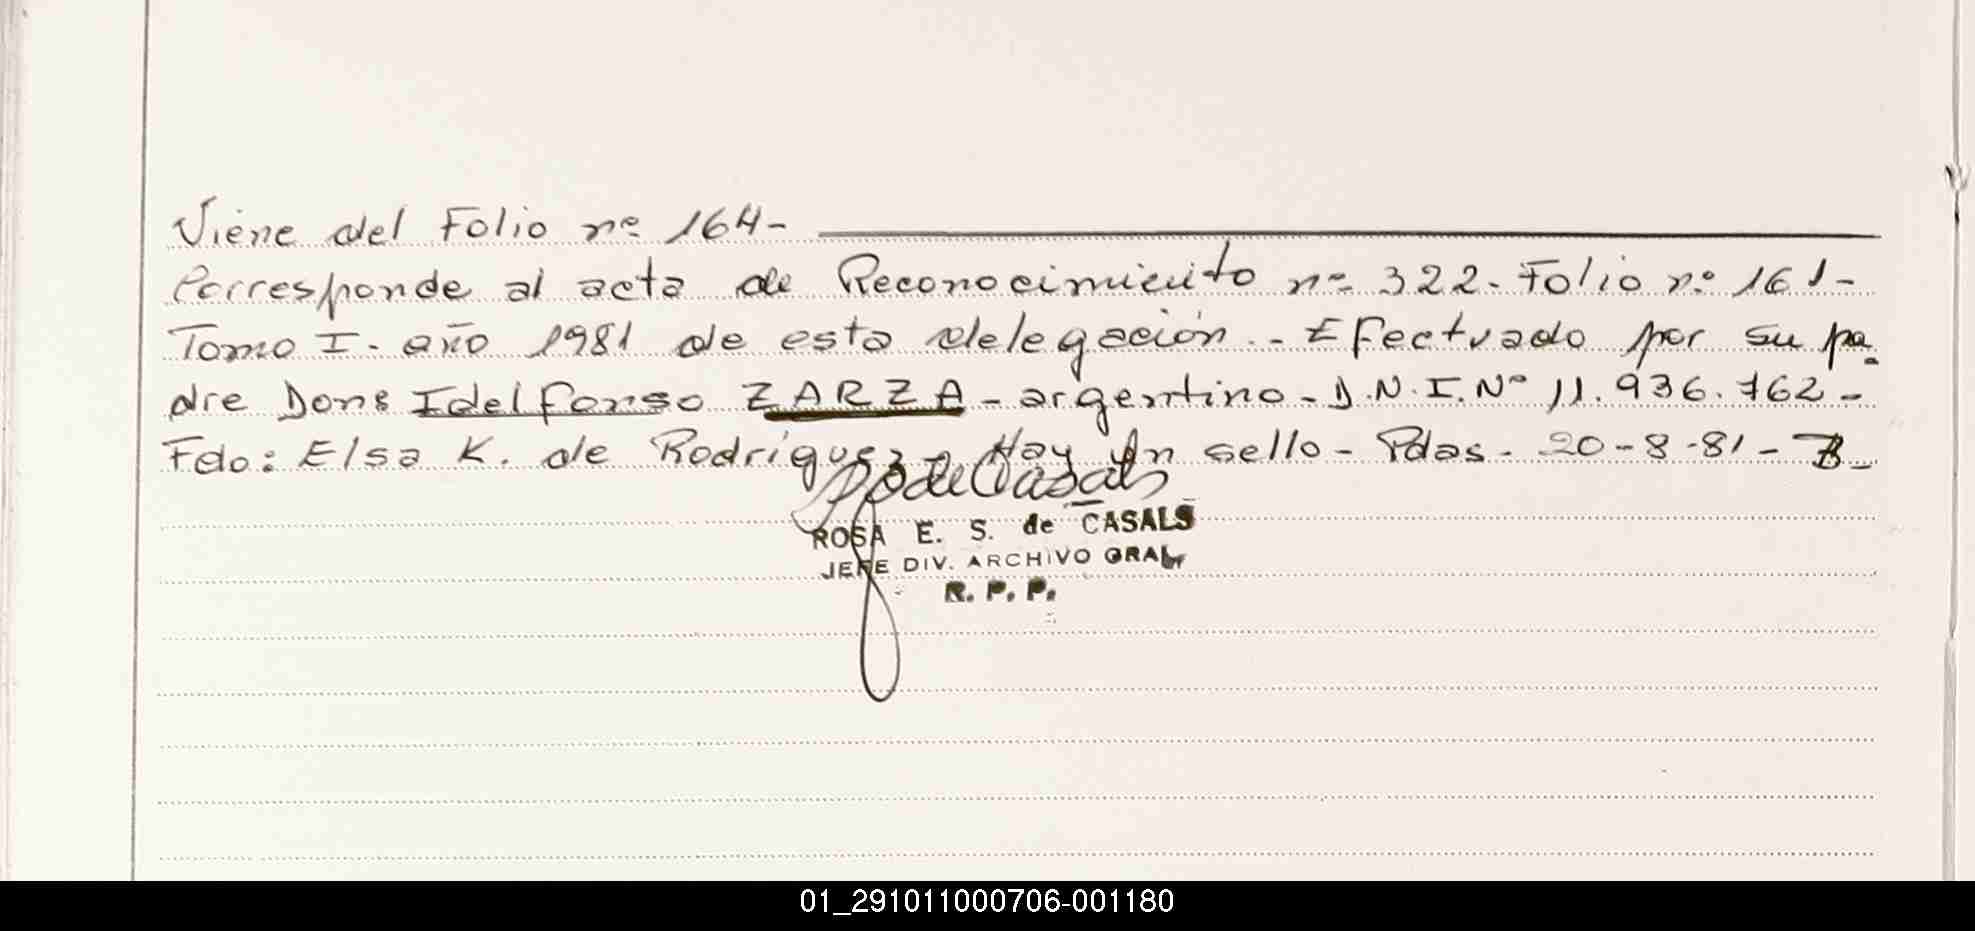 Viene del Folio nº 164-
Corresponde al acta de Reconocimiento nº 322. Folio nº 161-
Tomo I. año 1981 de esta delegación.- Efectuado por su pa-
dre Don: Idelfonso ZARZA - argentino - D.N.I. Nº 11.936.762-
Fdo: Elsa K. de Rodríguez - Hay Un sello - Pdas. 20-8-81 -
de Casals
ROSA E. S. de CASALS
JEFE DIV. ARCHIVO GRAL
R. P. P.
01_291011000706-001180